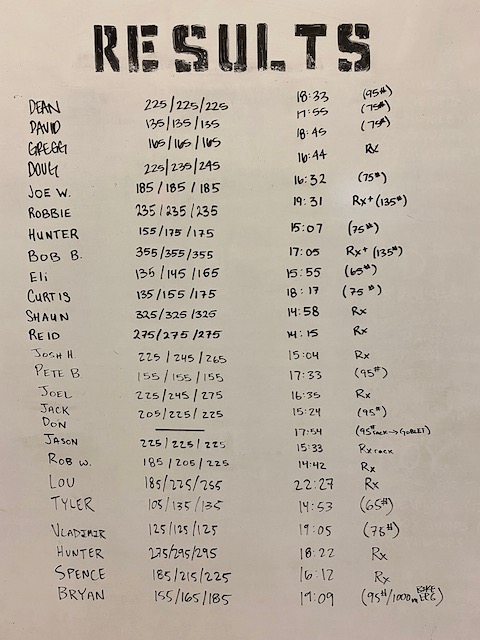 RESULTS
DEAN 225/225/225 18:33 (95#)
DAVID 135/135/135 17:55 (75#)
GREGG 165/165/165 18:45 (75#)
DOUG 225/235/245 16:44 Rx
JOE W. 185/185/185 16:32 (75#)
ROBBIE 235/235/235 19:31 Rx+ (135#)
HUNTER 155/175/175 15:07 (75#)
BOB B. 355/355/355 17:05 Rx+ (135#)
Eli 135/145/165 15:55 (65#)
CURTIS 135/155/175 18:17 (75#)
SHAUN 325/325/325 14:58 Rx
REID 275/275/275 14:15 Rx
JOSH H. 225/245/265 15:04 Rx
PETE B 155/155/155 17:33 (95#)
JOEL 225/245/275 16:35 Rx
JACK 205/225/225 15:24 (95#)
DON —— 17:54 (95# rack→GOBLET)
JASON 225/225/225 15:33 Rx rack
ROB W. 185/205/225 14:42 Rx
LOU 185/225/255 22:27 Rx
TYLER 105/135/135 14:53 (65#)
VLADIMIR 125/125/125 19:05 (75#)
HUNTER 275/295/295 18:22 Rx
SPENCE 185/215/225 16:12 Rx
BRYAN 155/165/185 19:09 (95#/1000m BIKE ERG)